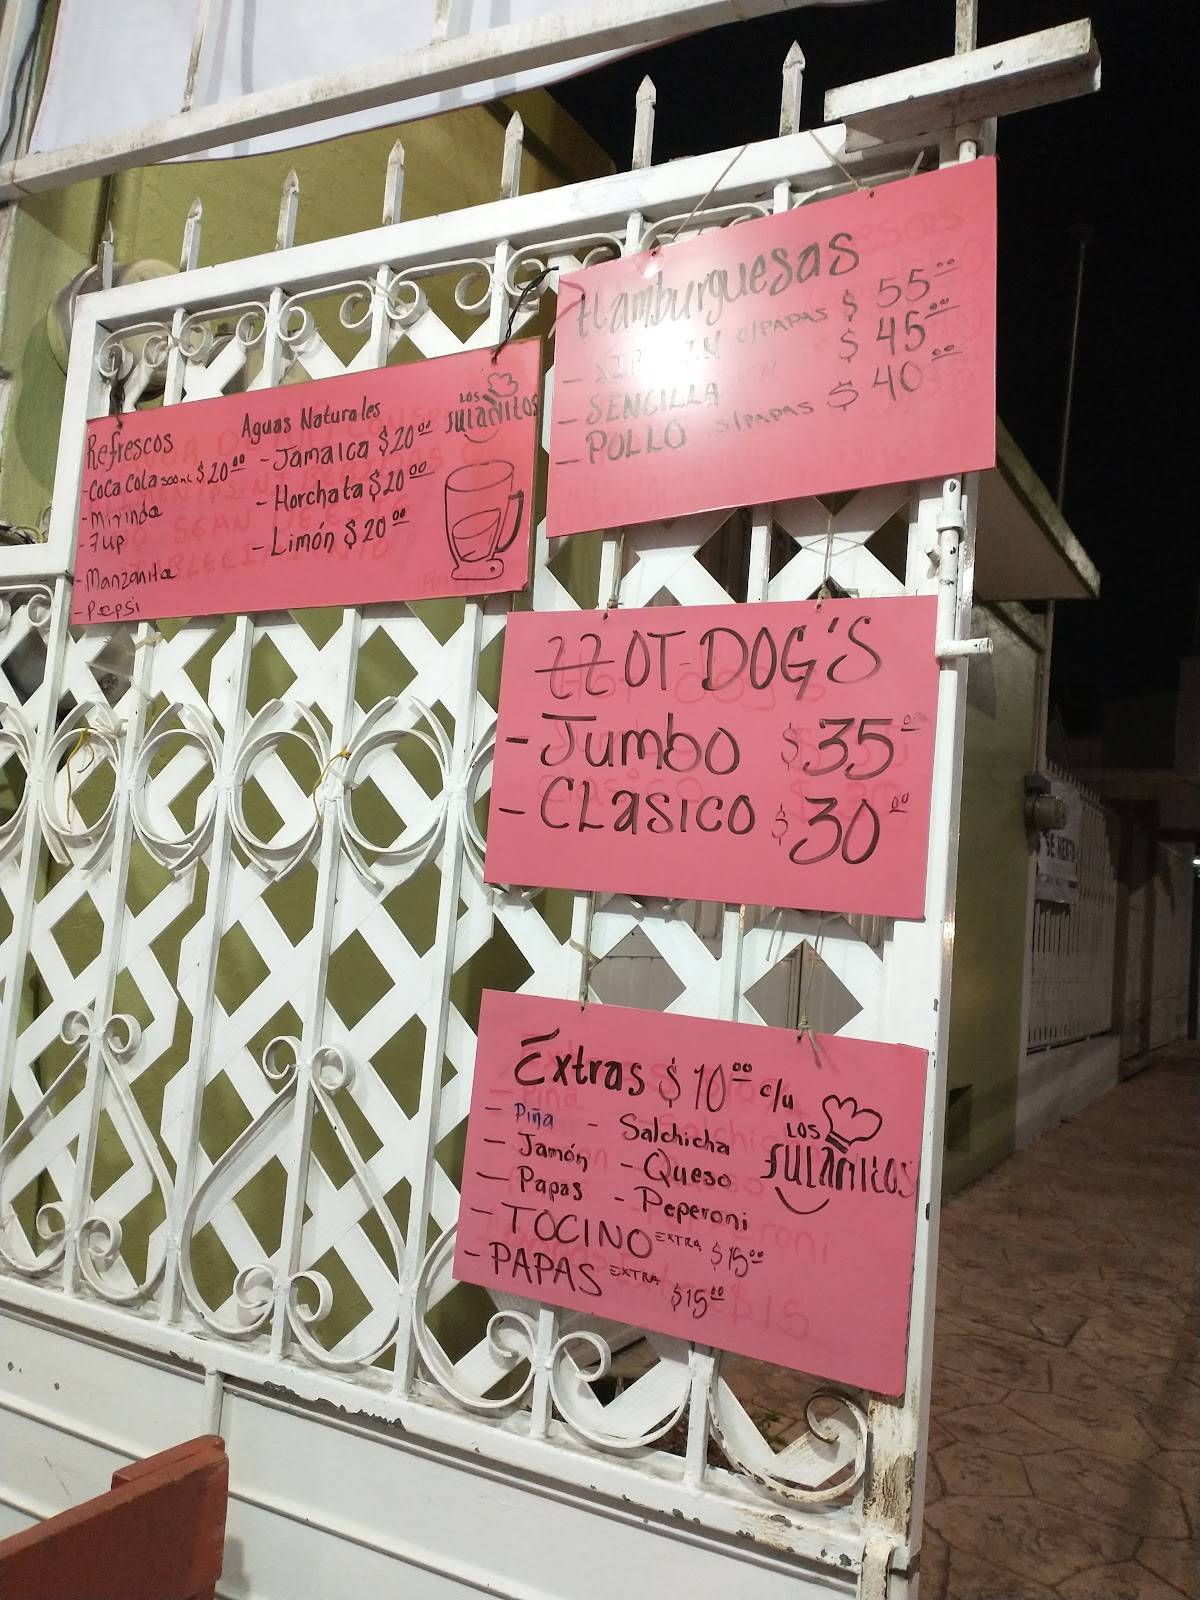 Refrescos
-Coca Cola 500ml $20.00
-Mirinda
-7up
-Manzanita
-Pepsi
Aguas Naturales
-Jamaica $20.00
-Horchata $20.00
-Limón $20.00
LOS
JULAÑITOS
Hamburguesas
- c/PAPAS $55.00
-SENCILLA $45.00
-POLLO S/PAPAS $40.00
HOT-DOG'S
-Jumbo $35.00
-CLASICO $30.00
Extras $10.00 c/u
-Piña
-Jamón
-Papas
-Salchicha
-Queso
-Peperoni
-TOCINO EXTRA $15.00
-PAPAS EXTRA $15.00
LOS
JULAÑITOS
SE RENTA